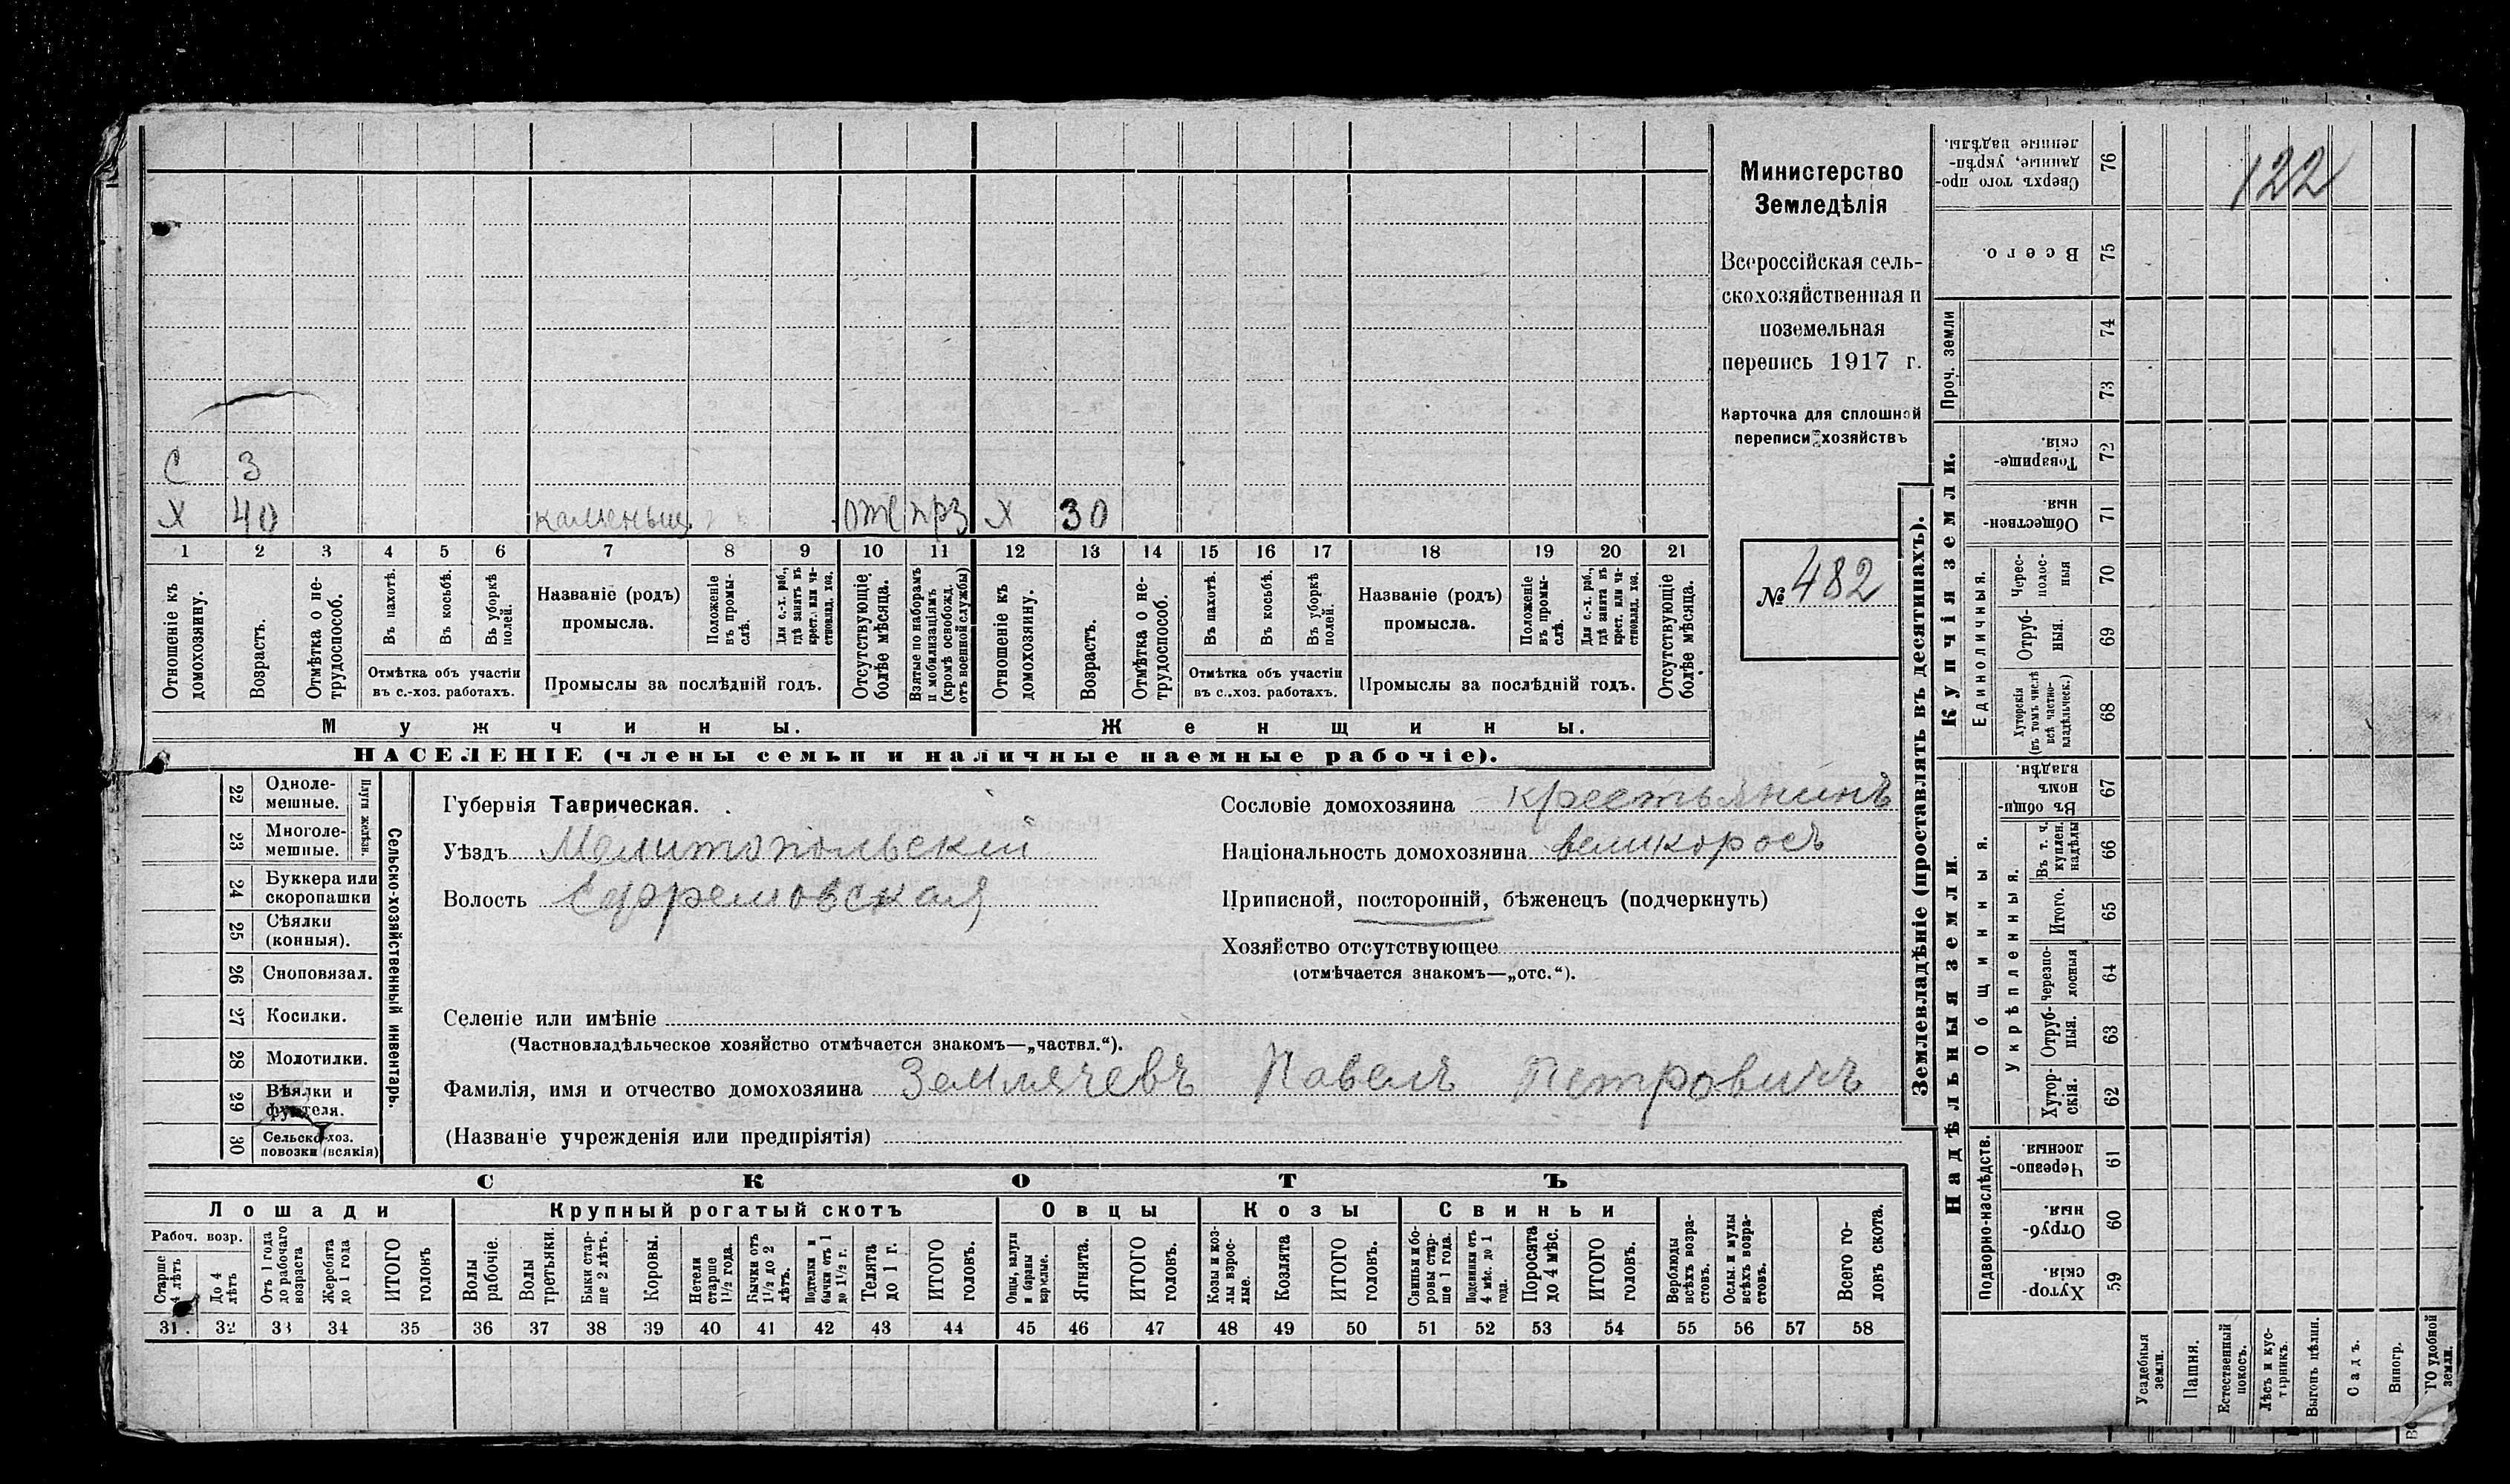 122
Министерство
Земледѣлія
Всероссійская сель-
скохозяйственная и
поземельная
перепись 1917 г.
Карточка для сплошной
переписи хозяйствъ
№ 482
С 3
Х 40 каменьщ. отс прз Х 30
1 2 3 4 5 6 7 8 9 10 11 12 13 14 15 16 17 18 19 20 21
Отношеніе къ домохозяину.
Возрастъ.
Отмѣтка о не-трудоспособ.
Въ пахотѣ.
Въ косьбѣ.
Въ уборкѣ полей.
Отмѣтка объ участіи
въ с.-хоз. работахъ.
Названіе (родъ)
промысла.
Положеніе въ промы-слѣ.
Для с.-х. раб., гдѣ занятъ въ крест. или ча-ствовлад. хоз.
Промыслы за послѣдній годъ.
Отсутствующіе болѣе мѣсяца.
Взятые по наборамъ и мобилизаціямъ (кромѣ освобожд. отъ военной службы)
Отношеніе къ домохозяину.
Возрастъ.
Отмѣтка о не-трудоспособ.
Въ пахотѣ.
Въ косьбѣ.
Въ уборкѣ полей.
Отмѣтка объ участіи
въ с.-хоз. работахъ.
Названіе (родъ)
промысла.
Положеніе въ промы-слѣ.
Для с.-х. раб., гдѣ занята въ крест. или ча-ствовлад. хоз.
Промыслы за послѣдній годъ.
Отсутствующіе болѣе мѣсяца.
Мужчины. Женщины.
НАСЕЛЕНІЕ (члены семьи и наличные наемные рабочіе).
Сельско-хозяйственный инвентарь.
Плуги желѣзн.
22 Одноле-мешные.
23 Многоле-мешные.
24 Буккера или скоропашки
25 Сѣялки (конныя).
26 Сноповязал.
27 Косилки.
28 Молотилки.
29 Вѣялки и фухтеля.
30 Сельско-хоз. повозки (всякія)
Губернія Таврическая.
Уѣздъ Мелитопольскій
Волость Ефремовская
Сословіе домохозяина крестьянинъ
Національность домохозяина великоросъ
Приписной, посторонній, бѣженецъ (подчеркнуть)
Хозяйство отсутствующее
(отмѣчается знакомъ—„отс.“).
Селеніе или имѣніе
(Частновладѣльческое хозяйство отмѣчается знакомъ—„частвл.“).
Фамилія, имя и отчество домохозяина Землячевъ Павелъ Петровичъ
(Названіе учрежденія или предпріятія)
СКОТЪ
Лошади Крупный рогатый скотъ Овцы Козы Свиньи
Рабоч. возр.
Старше 4 лѣтъ
До 4 лѣтъ
Отъ 1 года до рабочаго возраста
Жеребята до 1 года
ИТОГО головъ
Волы рабочіе.
Волы третьяки.
Быки стар-ше 2 лѣтъ.
Коровы.
Нетели старше 1½ года.
Бычки отъ 1½ до 2 лѣтъ.
Подтелки и бычки отъ 1 до 1½ г.
Телята до 1 г.
ИТОГО головъ.
Овцы, валухи и бараны взрослые.
Ягнята.
ИТОГО головъ.
Козы и коз-лы взрос-лые.
Козлята
ИТОГО головъ.
Свиньи и бо-ровы стар-ше 1 года.
Подсвинки отъ 4 мѣс. до 1 года.
Поросята до 4 мѣс.
ИТОГО головъ.
Верблюды всѣхъ возра-стовъ.
Ослы и мулы всѣхъ возра-стовъ.
Всего го-ловъ скота.
31 32 33 34 35 36 37 38 39 40 41 42 43 44 45 46 47 48 49 50 51 52 53 54 55 56 57 58
Землевладѣніе (проставлять въ десятинахъ).
Купчія земли.
Надѣльныя земли.
Сверхъ того про-данные, укрѣп-ленные надѣлы. 76
Всего. 75
Проч. земли 74
73
Товарище-скія. 72
Обществен-ныя. 71
Единоличныя.
Черес-полос-ныя 70
Отруб-ныя. 69
Хуторскія (въ томъ числѣ всѣ частно-владѣльческ.) 68
Общинныя.
Въ общин-номъ владѣн. 67
Укрѣпленныя.
Въ т. ч. куплен. надѣлы 66
Итого. 65
Черезпо-лосныя 64
Отруб-ныя. 63
Хутор-скія. 62
Подворно-наслѣдств.
Черезпо-лосныя 61
Отруб-ныя. 60
Хутор-скія. 59
Усадебныя земли.
Пашня.
Естественный покосъ.
Лѣсъ и кус-тарникъ.
Выгонъ цѣлин.
Садъ.
Виногр.
ГО удобной земли.